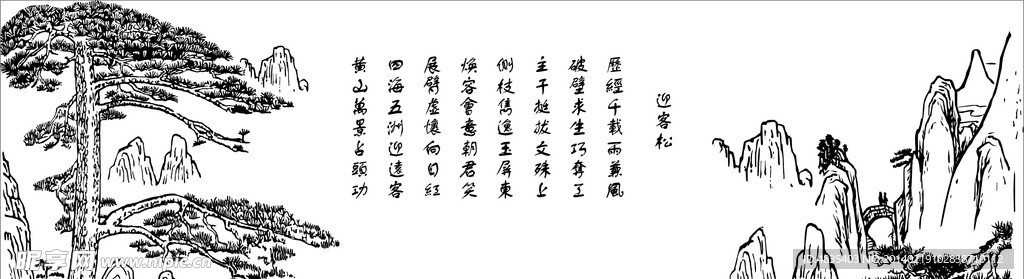 迎客松
歷經千載雨兼風
破壁求生巧奪工
主干挺拔文殊上
側枝雋逸玉屏東
煥容會意朝君笑
展臂虛懷向日紅
四海五洲迎遠客
黃山萬景占頭功
昵享网
www.nipic.com